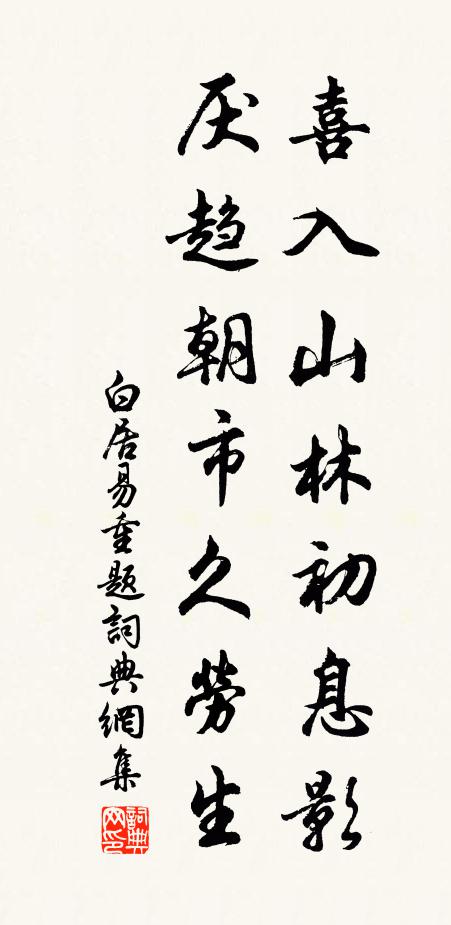 喜入山林初息影
厌趋朝市久劳生
白居易重题詞典網集
詞典網印